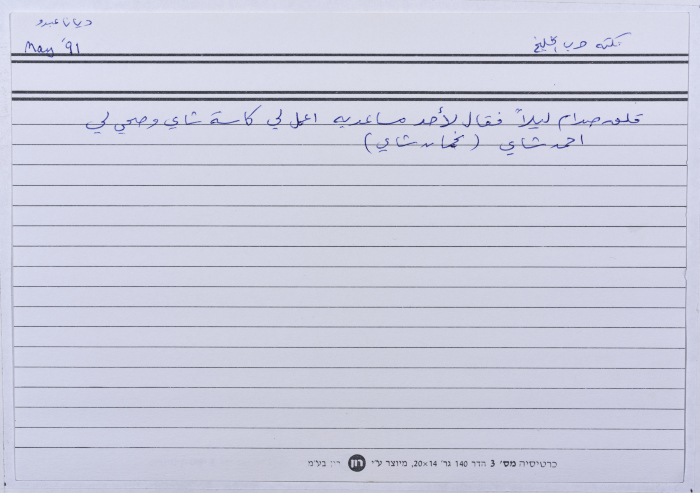 نكته حرب الخليج
ديانا عبدو
May '91
قلق صدام ليلاً فقال لأحد مساعديه اعمل لي كاسة شاي وصحي لي
احمد شاي (نخمان شاي)
כרטיסיה מס' 3 הדר 140 גר' 20×14, מיוצר ע"י רון רון בע"מ